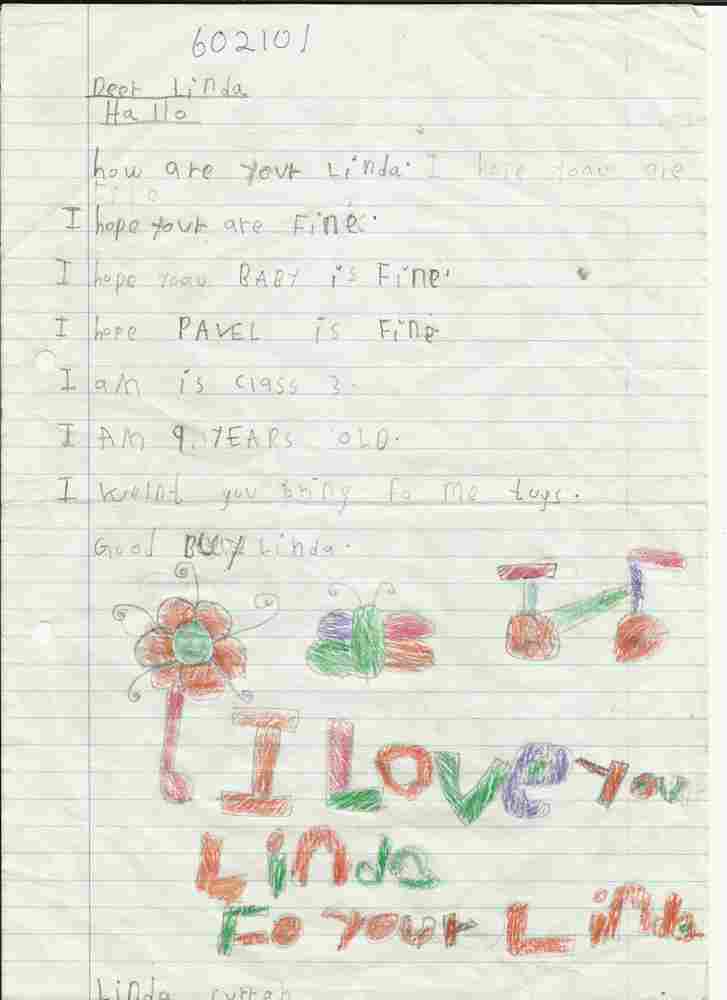 602101
Deer Linda
Hallo
how are your Linda. I hope yoau are
Fine
I hope your are Fine.
I hope yoau BABY is Fine.
I hope PAVEL is Fine
I am is class 3.
I AM 9. YEARS OLD.
I weant you bring fo me toys.
Good BUY Linda.
I Love you
Linda
Fo your Linda
Linda